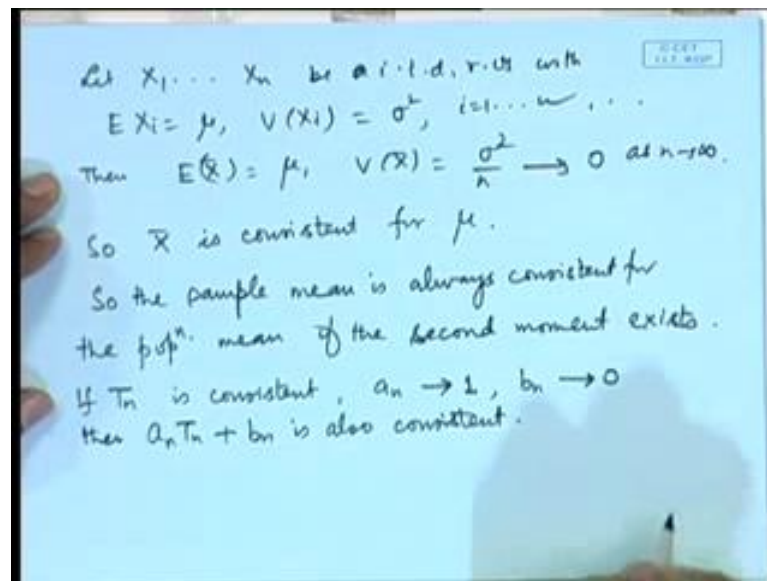 Let X₁ . . . Xₙ be a i.i.d. r.v.s with
E Xi = μ, V(Xi) = σ², i=1 . . . n, . . .
Then E(x̄) = μ, V(x̄) = σ²/n → 0 as n→∞.
So x̄ is consistent for μ.
So the sample mean is always consistent for
the popⁿ. mean if the second moment exists.
If Tₙ is consistent, aₙ → 1, bₙ → 0
then aₙTₙ + bₙ is also consistent.